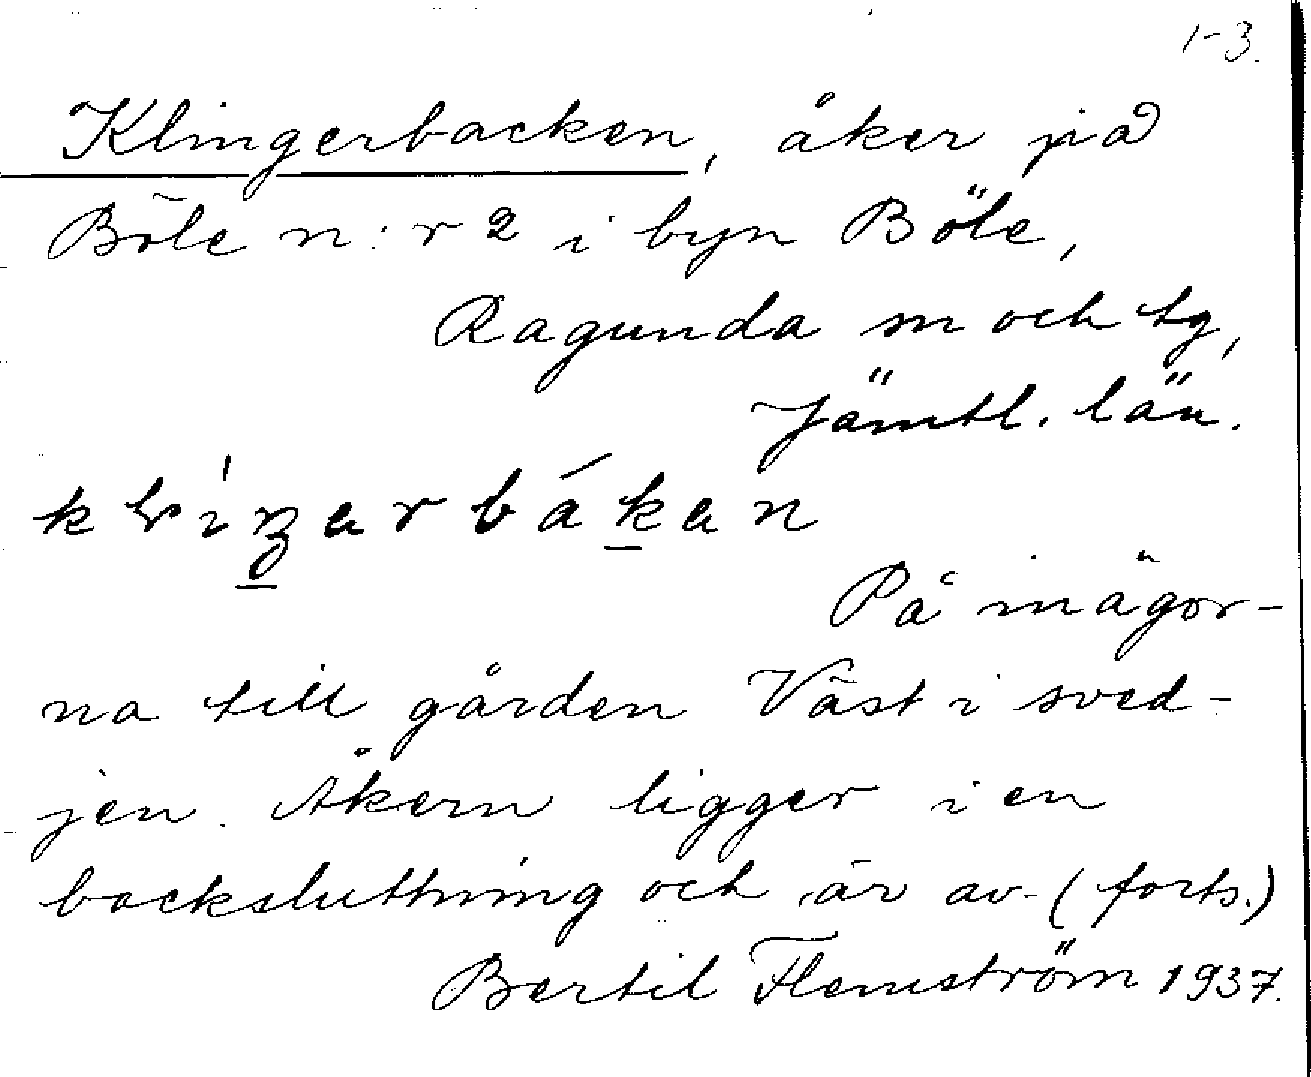 1-3.
Klingerbacken, åker på
Böle n:r 2 i byn Böle,
Ragunda sn och tg,
Jämtl. län.
På inägor-
na till gården Väst i sved-
jen. Åkern ligger i en
backsluttning och är av (forts.)
Bertil Flemström 1937.